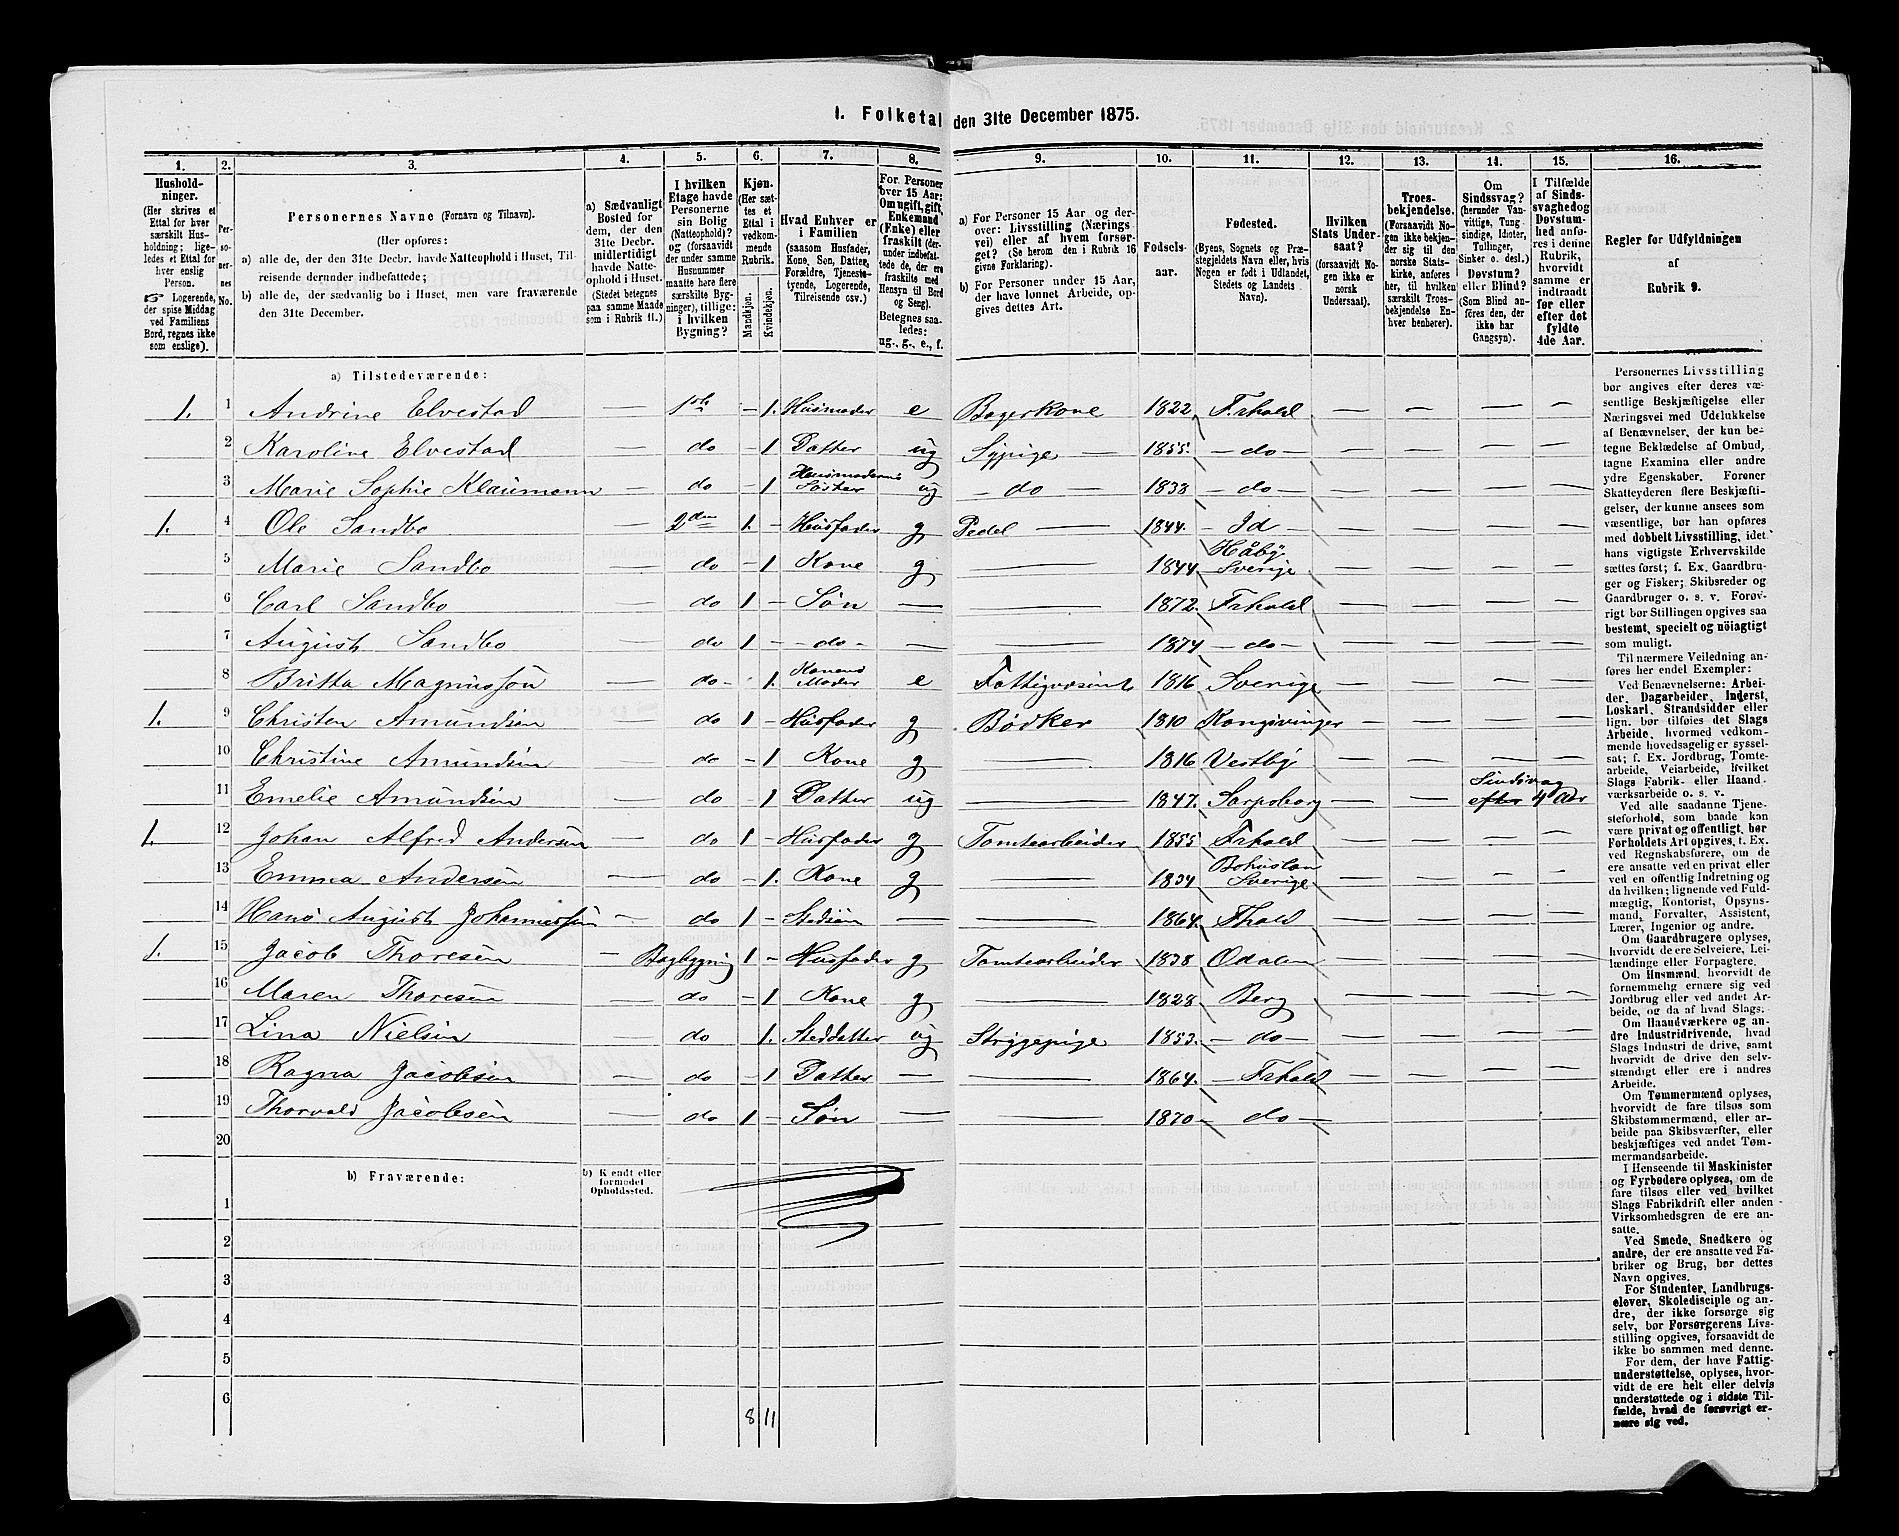 1. Folketal den 31te December 1875.
1. 2. 3. 4. 5. 6. 7. 8. 9. 10. 11. 12. 13. 14. 15. 16.
Husholdninger. (Her skrives et Ettal for hver særskilt Husholdning; ligeledes et Ettal for hver enslig Person. ☞ Logerende, der spise Middag ved Familiens Bord, regnes ikke som enslige).
Personernes No.
Personernes Navne (Fornavn og Tilnavn).
(Her opføres:
a) alle de, der den 31te Decbr. havde Natteophold i Huset, Tilreisende derunder indbefattede;
b) alle de, der sædvanlig bo i Huset, men vare fraværende den 31te December.
a) Sædvanligt Bosted for dem, der den 31te Decbr. midlertidigt havde Natteophold i Huset. (Stedet betegnes paa samme Maade som i Rubrik 11.)
I hvilken Etage havde Personerne sin Bolig (Natteophold)? og (forsaavidt der under samme Husnummer maatte høre flere særskilte Bygninger), tillige: i hvilken Bygning?
Kjøn. (Her sættes et Ettal i vedkommende Rubrik. Mandkjøn. Kvindekjøn.
Hvad Enhver er i Familien (saasom Husfader, Kone, Søn, Datter, Forældre, Tjenestetyende, Logerende, Tilreisende osv.)
For Personer over 15 Aar: Om ugift, gift, Enkemand (Enke) eller fraskilt (derunder indbefattede de, der ere fraskilte med Hensyn til Bord og Seng). Betegnes saaledes: ug., g., e., f.
a) For Personer 15 Aar og derover: Livsstilling (Næringsvei) eller af hvem forsørget? (Se herom den i Rubrik 16 givne Forklaring).
b) For Personer under 15 Aar, der have lønnet Arbeide, opgives dettes Art.
Fødselsaar.
Fødested. (Byens, Sognets og Præstegjeldets Navn eller, hvis Nogen er født i Udlandet, Stedets og Landets Navn).
Hvilken Stats Undersaat? (forsaavidt Nogen ikke er norsk Undersaat).
Troesbekjendelse. (Forsaavidt Nogen ikke bekjender sig til den norske Statskirke, anføres her, til hvilken særskilt Troesbekjendelse Enhver henhører).
Om Sindssvag? (herunder Vanvittige, Tungsindige, Idioter, Tullinger, Sinker o. desl.) Døvstum? eller Blind? (Som Blind anføres den, der ikke har Gangsyn).
I Tilfælde af Sindssvaghed og Døvstumhed anføres i denne Rubrik, hvorvidt samme er indtraadt før eller efter det fyldte 4de Aar.
Regler for Udfyldningen af Rubrik 9.
a) Tilstedeværende:
1. 1 Andrine Elvestad — 1ste – 1. Husmoder e Bagerkone 1822 Frhald — — — —
2 Karoline Elvestad — do – 1 Datter ug Sypige — 1855. – do – — — — —
3 Marie Sophie Klaumann — do – 1 Husmoderens Søster ug – do – 1838 – do – — — — —
1. 4 Ole Sandbo — 2den 1. – Husfader g Pedel — 1844. – Id – — — — —
5 Marie Sandbo — do – 1 Kone g — 1844 Håby Sverige — — — —
6 Carl Sandbo — do 1 – Søn — — 1872. Frhald — — — —
7 August Sandbo — do 1 – – do – — — 1874 – do – — — — —
8 Britta Magnusson — do – 1. Konens Moder e Fattigvæsint 1816 Sverige — — — —
1. 9 Christen Amundsen — do 1 – Husfader g Bødker 1810 Kongsvinger — — — —
10 Christine Amundsen — do – 1 Kone g — 1816 Vestby — — — —
11 Emelie Amundsen — do – 1 Datter ug — 1847. Sarpsborg — — Sindsvag efter 4de Aar
1. 12 Johan Alfred Andersen — do 1 – Husfader g Tomtearbeider 1855 Frhald — — — —
13 Emma Andersen — do – 1. Kone g — 1834 Bohuslan Sverige — — — —
14 Hans August Johannessen — do 1 – Stedsøn — — 1864. Fhald — — — —
1. 15 Jacob Thoresen – Bagbygning 1 – Husfader g Tomtearbeider 1838 Odalen — — — —
16 Maren Thoresen — do – 1 Kone g — 1828 Berg — — — —
17 Lina Nielsen — do – 1. Steddatter ug Strygepige 1853. – do – — — — —
18 Ragna Jacobsen — do – 1 Datter — — 1864. – Frhald — — — —
19 Thorvald Jacobsen — do 1 – Søn — — 1870 – do – — — — —
20
b) Fraværende:
b) Kjendt eller formodet Opholdssted.
1
2
3
4
5
6
8 11
Personernes Livsstilling bør angives efter deres væsentlige Beskjæftigelse eller Næringsvei med Udelukkelse af Benævnelser, der kun betegne Beklædelse af Ombud, tagne Examina eller andre ydre Egenskaber. Forener Skatteyderen flere Beskjæftigelser, der kunne ansees som væsentlige, bør han opføres med dobbelt Livsstilling, idet hans vigtigste Erhvervskilde sættes først; f. Ex. Gaardbruger og Fisker; Skibsreder og Gaardbruger o. s. v. Forøvrigt bør Stillingen opgives saa bestemt, specielt og nöiagtigt som muligt.
Til nærmere Veiledning anføres her endel Exempler:
Ved Benævnelserne: Arbeider, Dagarbeider, Inderst, Loskarl, Strandsidder eller lign. bør tilføies det Slags Arbeide, hvormed vedkommende hovedsagelig er sysselsat; f. Ex. Jordbrug, Tomtearbeide, Veiarbeide, hvilket Slags Fabrik- eller Haandværksarbeide o. s. v.
Ved alle saadanne Tjenesteforhold, som baade kan være privat og offentligt, bør Forholdets Art opgives, t. Ex. ved Regnskabsførere, om de ere ansatte ved en privat eller ved en offentlig Indretning og da hvilken; lignende ved Fuldmægtig, Kontorist, Opsynsmand, Forvalter, Assistent, Lærer, Ingeniør og andre.
Om Gaardbrugere oplyses, hvorvidt de ere Selveiere, Leilændinge eller Forpagtere.
Om Husmænd, hvorvidt de fornemmelig ernære sig ved Jordbrug eller ved andet Arbeide, og da af hvad Slags.
Om Haandværkere og andre Industridrivende, hvad Slags Industri de drive, samt hvorvidt de drive den selvstændigt eller ere i andres Arbeide.
Om Tømmermænd oplyses, hvorvidt de fare tilsøs som Skibstømmermænd, eller arbeide paa Skibsværfter, eller beskjæftiges ved andet Tømmermandsarbeide.
I Henseende til Maskinister og Fyrbødere oplyses, om de fare tilsøs eller ved hvilket Slags Fabrikdrift eller anden Virksomhedsgren de ere ansatte.
Ved Smede, Snedkere og andre, der ere ansatte ved Fabriker og Brug, bør dettes Navn opgives.
For Studenter, Landbrugselever, Skoledisciple og andre, der ikke forsørge sig selv, bør Forsørgerens Livsstilling opgives, forsaavidt de ikke bo sammen med denne.
For dem, der have Fattigunderstøttelse, oplyses, hvorvidt de ere helt eller delvis understøttede og i sidste Tilfælde, hvad de forøvrigt ernære sig ved.